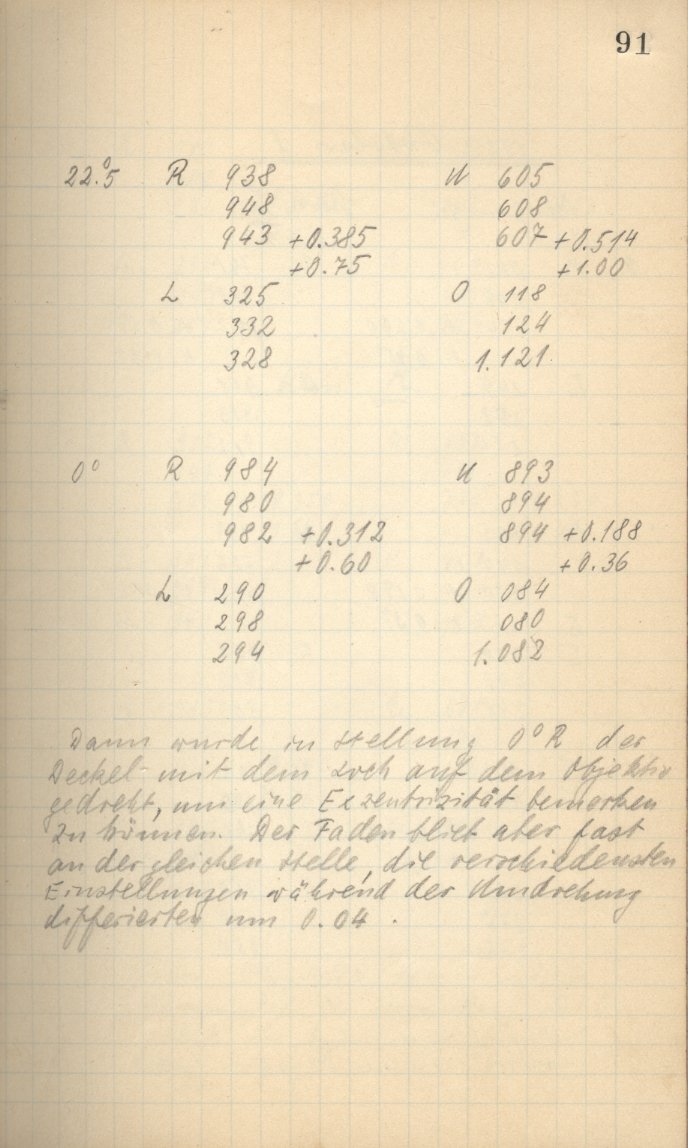 91
22.°5 R 938 U 605
948 608
943 +0.385 607 +0.514
+0.75 +1.00
L 325 O 118
332 124
328 1.121
0° R 984 U 893
980 894
982 +0.312 894 +0.188
+0.60 +0.36
L 290 O 084
298 080
294 1.082
Dann wurde in Stellung 0° R der
Deckel mit dem Loch auf dem Objektiv
gedreht, um eine Exzentrizität bemerken
zu können. Der Faden blieb aber fast
an der gleichen Stelle, die verschiedensten
Einstellungen während der Umdrehung
differierten um 0.04.